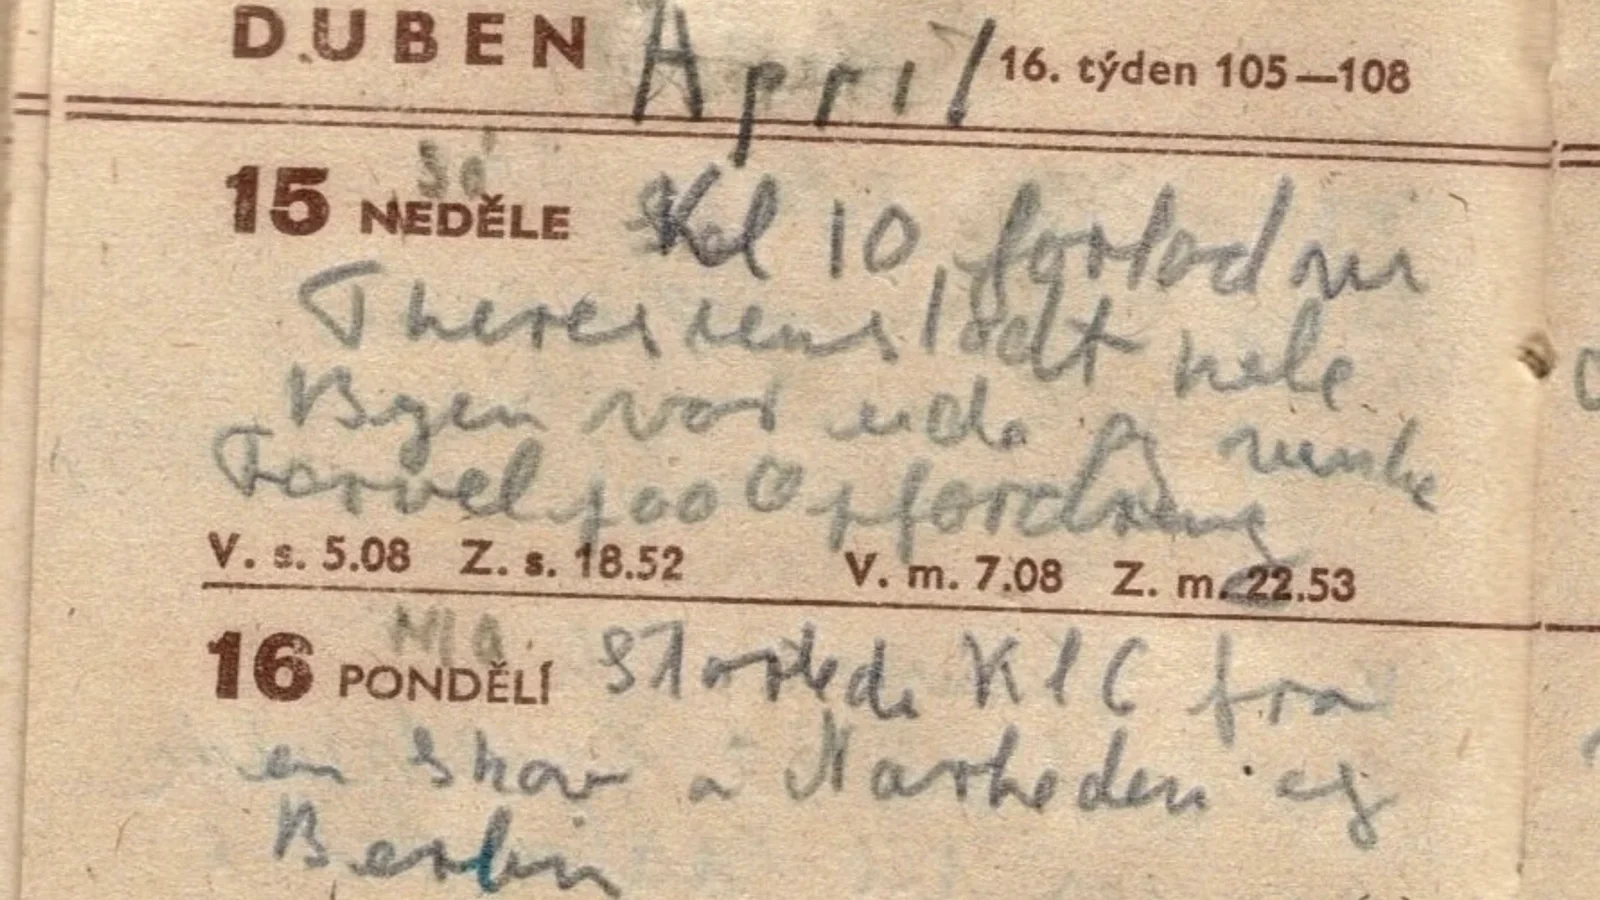 DUBEN April 16. týden 105—108
15 NEDĚLE Sö Kl 10 forlod vi
Theresienstadt hele
Byen var ude og vinke
Farvel paa Opfordring
V. s. 5.08 Z. s. 18.52 V. m. 7.08 Z. m. 22.53
16 PONDĚLÍ Ma Startede Kl fra
en Skov i Nærheden af
Berlin